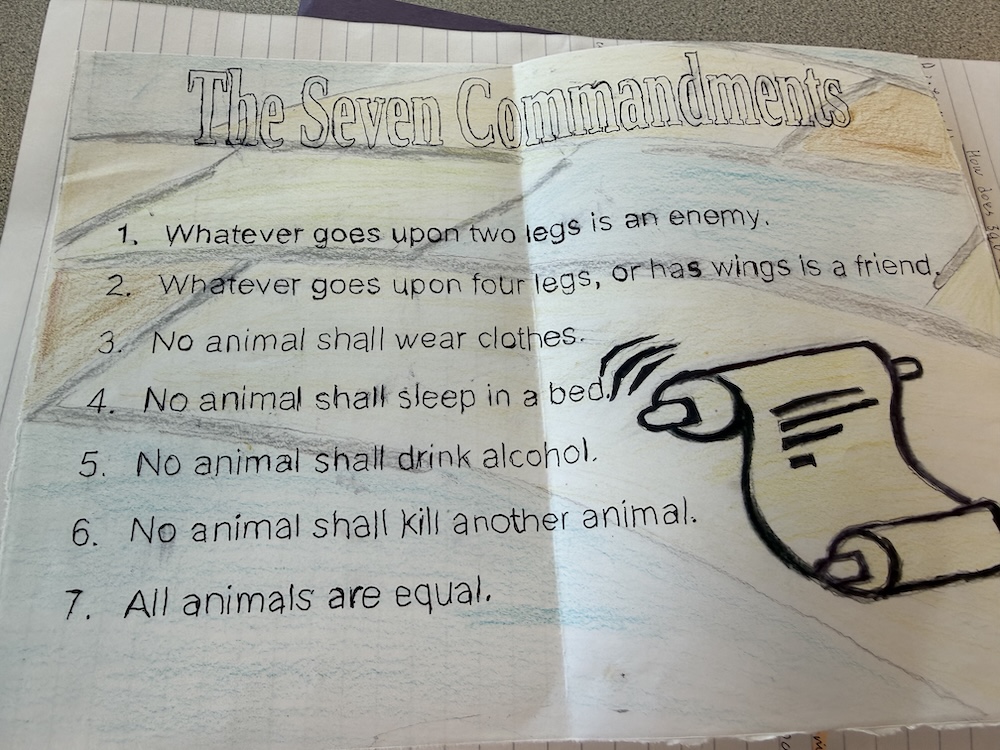 The Seven Commandments
1. Whatever goes upon two legs is an enemy.
2. Whatever goes upon four legs, or has wings is a friend.
3. No animal shall wear clothes.
4. No animal shall sleep in a bed.
5. No animal shall drink alcohol.
6. No animal shall kill another animal.
7. All animals are equal.
How does